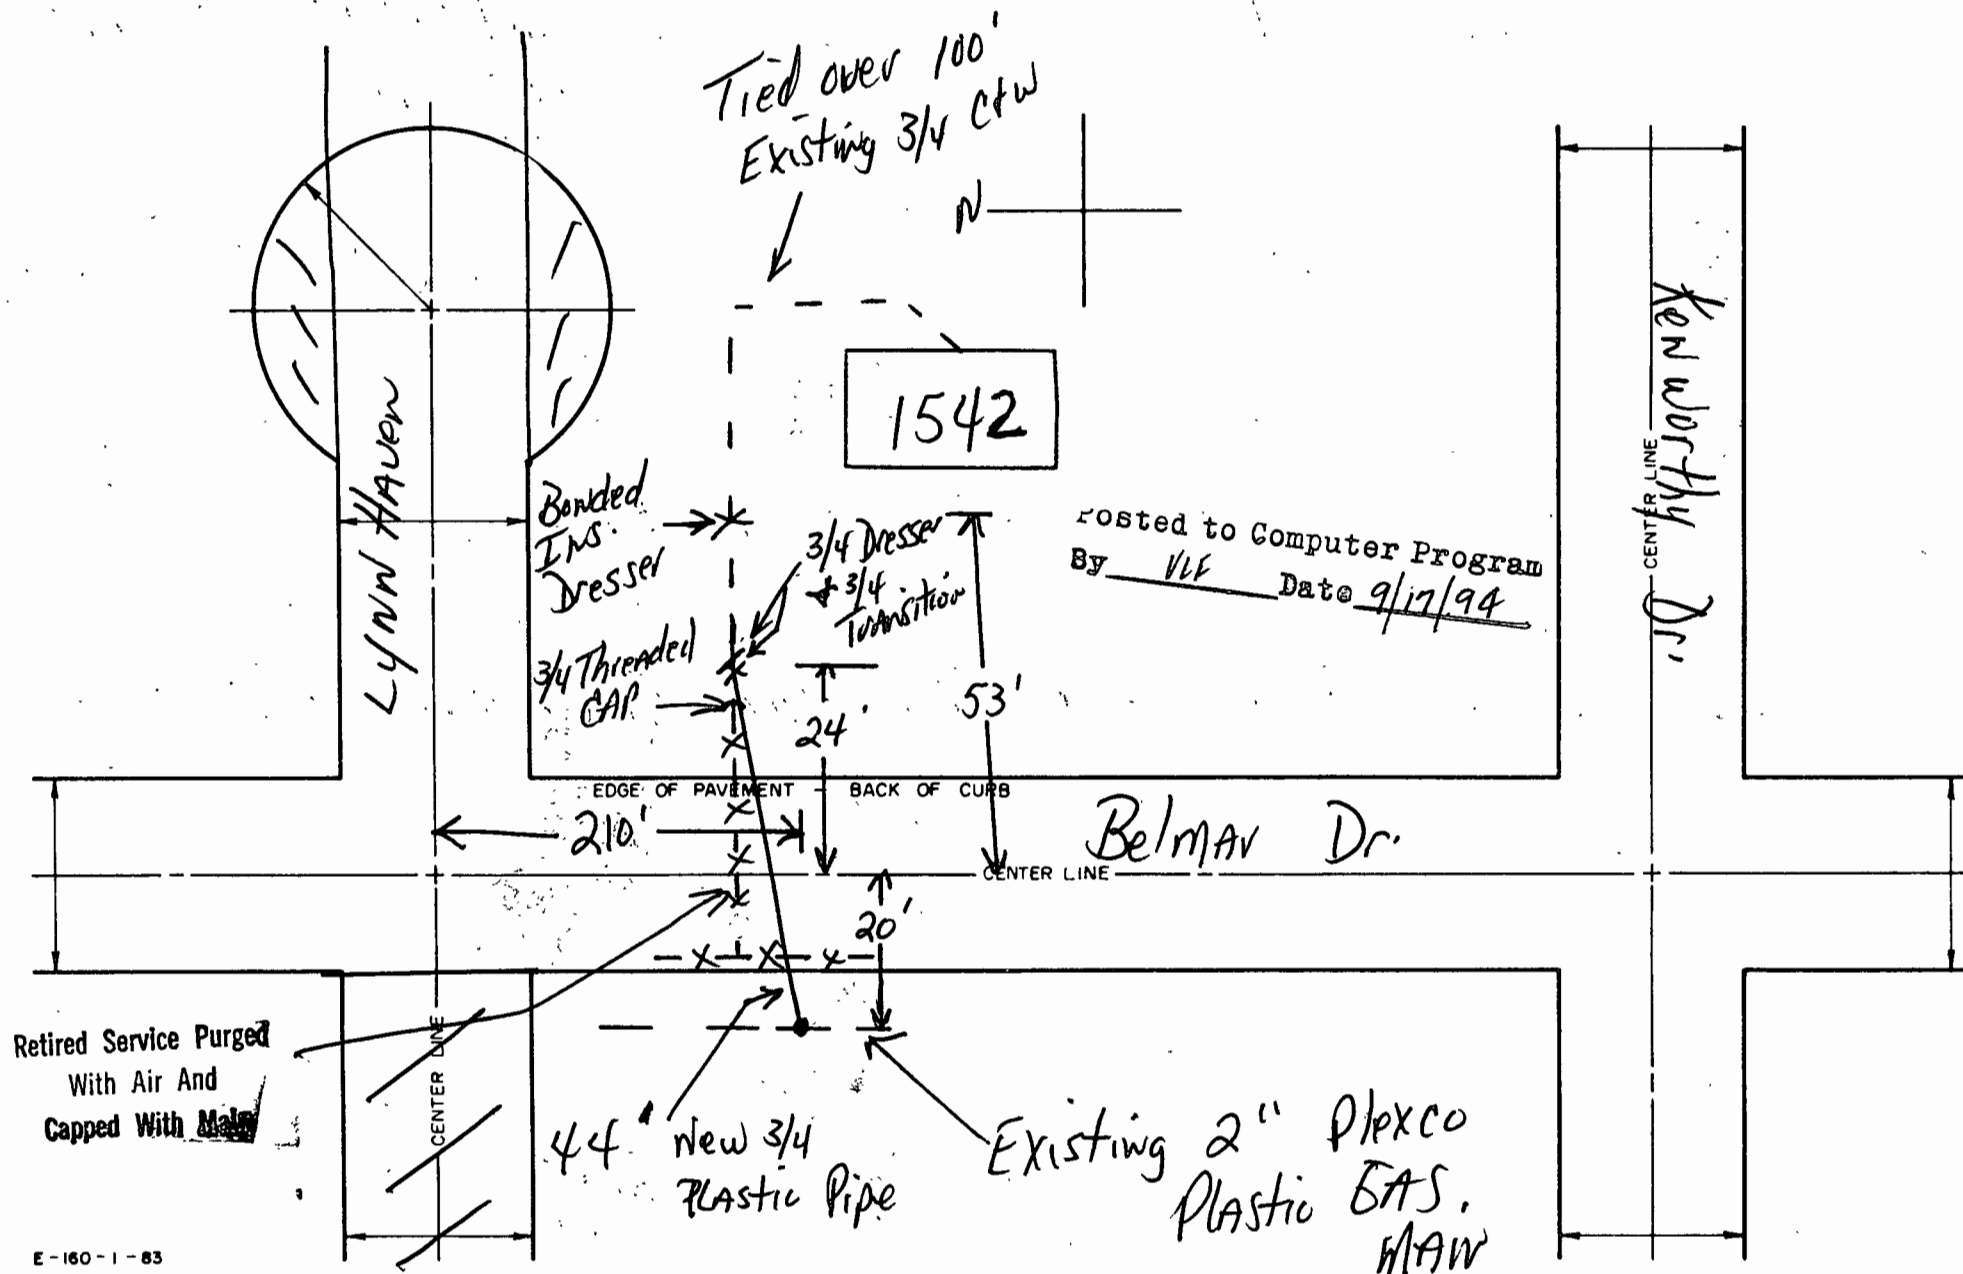 Tied over 100'
Existing 3/4 Ctw
N
1542
Lynn Haven
Kenworthy Dr.
CENTER LINE
Bonded
Ins.
Dresser
3/4 Dresser
& 3/4
Transition
Posted to Computer Program
By VLF Date 9/17/94
3/4 Threaded
CAP
24'
53'
EDGE OF PAVEMENT - BACK OF CURB
210'
Belmar Dr.
CENTER LINE
20'
Retired Service Purged
With Air And
Capped With Main
CENTER LINE
44' New 3/4
Plastic Pipe
Existing 2" Plexco
Plastic GAS.
MAIN
E-160-1-83